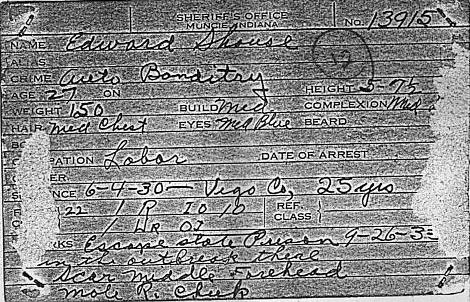 SHERIFF'S OFFICE
MUNCIE, INDIANA
No. 13915
NAME Edward Shouse
ALIAS
CRIME Auto Banditry
AGE 27 ON HEIGHT 5-7½
WEIGHT 150 BUILD Med COMPLEXION Med
HAIR Med Chest EYES Med Blue BEARD
PATION Labor DATE OF ARREST
NCE 6-4-30 — Vigo Co, 25 yrs
22 1 R IO 10 REF.
1 Ur OI CLASS
KS Escape State Prison 9-26-3
in the outbreak there
Scar middle Forehead
mole R. Cheek